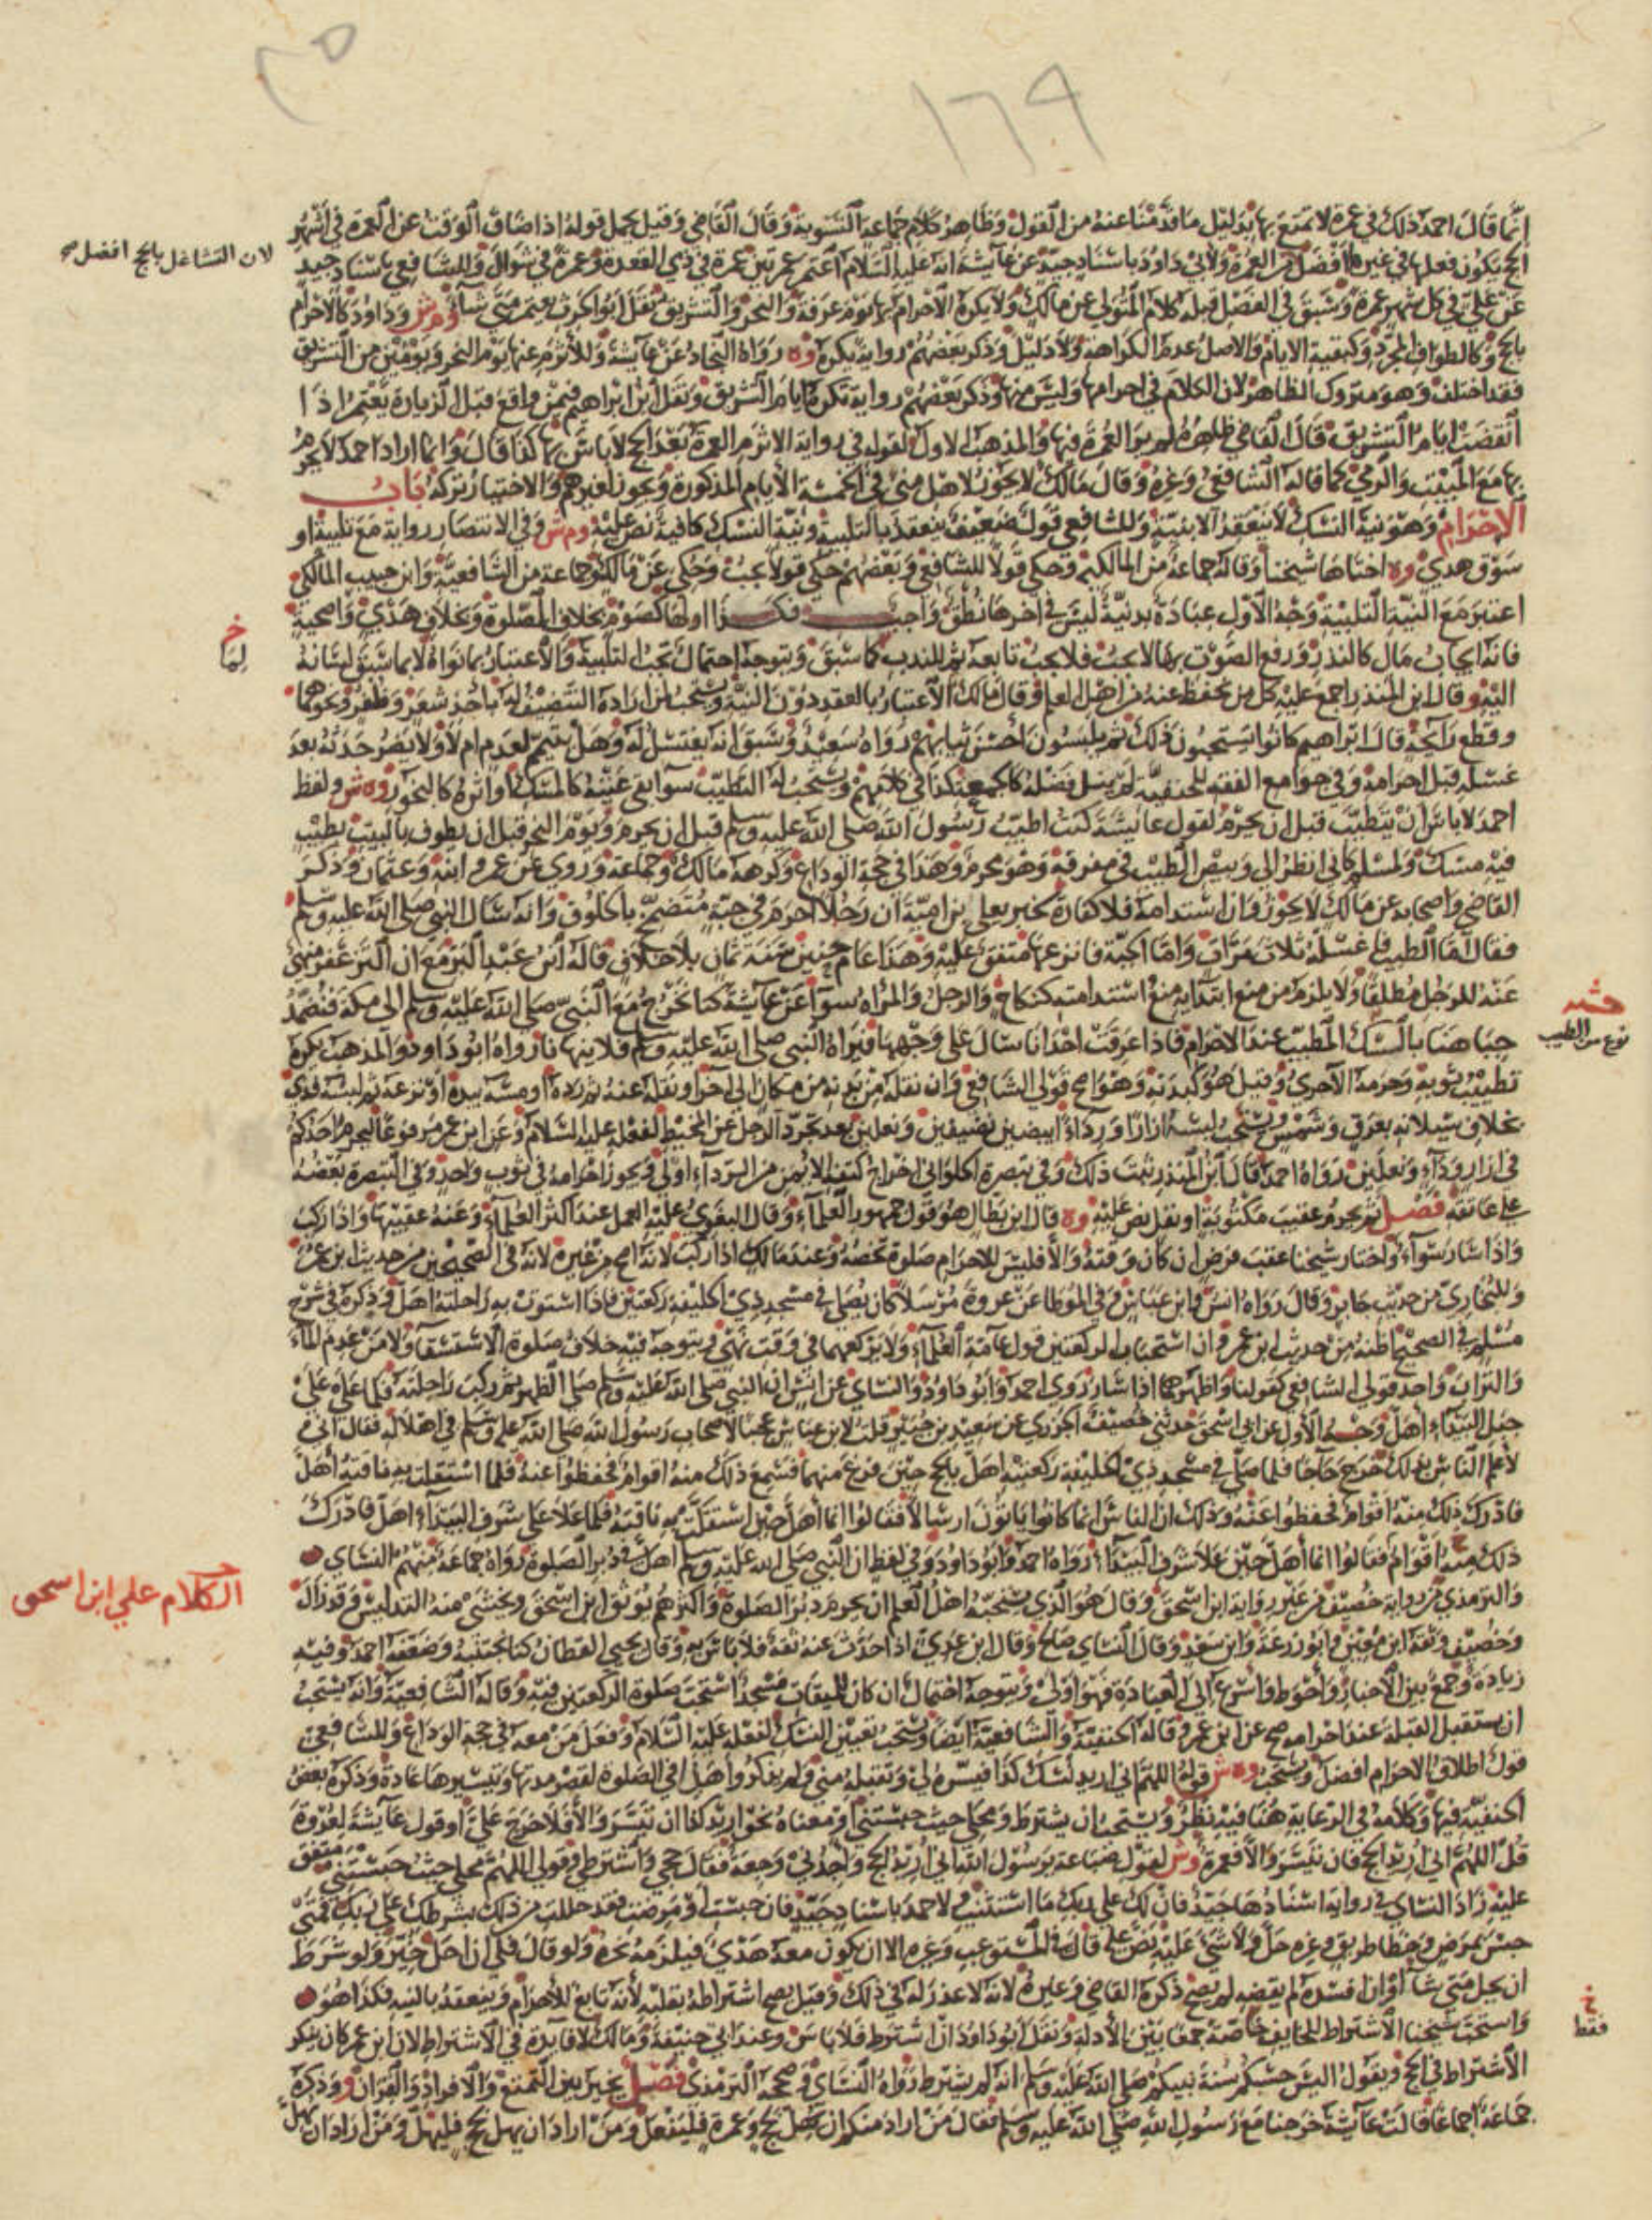 ٣٥
١٦٩
إنما قال أحمد ذلك في عمرة لا تمتع بها بدليل ما قدمنا عنه من القول وظاهر كلام جماعة التسوية وقال القاضي وقيل يحمل قوله إذا ضاق الوقت عن العمرة في أشهر
الحج تكون فعلها في غيرها أفضل من العمرة ولأبي داود باسناد جيد عن عائشة أنه عليه السلام اعتمر عمرتين عمرة في ذي القعدة وعمرة في شوال وللشافعي باسناد جيد
لان التشاغل بالحج افضل صح
عن علي في كل شهر عمرة وسبق في الفصل قبله كلام المتولي عن مالك ولا يكره الاحرام بها يوم عرفة والنحر والتشريق نقل أبو الحرث يعتمر متى شاء وم ش وداود كالاحرام
بالحج وكالطواف المجرد وكبقية الايام والاصل عدم الكراهة ولا دليل وذكر بعضهم رواية يكره وه رواه النجاد عن عائشة وللأثرم عنها يوم النحر ويومين من التشريق
فقد اختلف وهو متروك الظاهر لان الكلام في احرامها وليس منها وذكر بعضهم رواية تكره أيام التشريق ونقل ابن ابراهيم فيمن واقع قبل الزيارة يعتمر اذا
انقضت ايام التشريق قال القاضي ظاهره لم ير العمرة فيها والمذهب الاول لقوله في رواية الاثرم العمرة بعد الحج لا باس بها كذا قال وانما اراد احمد لا يحرم
بها مع المبيت والرمي كما قاله الشافعي وغيره وقال مالك لا يجوز لاهل منى في الخمسة الأيام المذكورة ويجوز لغيرهم والاختيار تركه باب
الاحرام وهو نية النسك لا ينعقد الا بنية وللشافعي قول ضعيف ينعقد بالتلبية ونية النسك كافية نص عليه وم ش وفي الانتصار رواية مع تلبية او
سوق هدي وه اختاها شيخنا وقاله جماعة من المالكية وحكي قولا للشافعي وبعضهم حكى قولا يجب وحكي عن مالك وجماعة من الشافعية وابن حبيب المالكي
اعتبر مع النية التلبية وجه الاول عبادة بدنية ليس في آخرها نطق واجب فكذا اولها كصوم بخلاف الصلوة وبخلاف هدي واضحية
خ
لها
فانه ايجاب مال كالنذر ورفع الصوت بها لا يجب فلا يجب تابعه ثم للندب كما سبق ويتوجه احتمال تجب التلبية والاعتبار بما نواه لا بما سبق لسانه
اليه وقال ابن المنذر اجمع عليه كل من نحفظ عنه من اهل العلم وقال مالك الاعتبار بالعقد دون النية ويستحب لمن اراده التنظيف له باخذ شعر وظفر ونحوهما
وقطع رائحة قال ابراهيم كانوا يستحبون ذلك ثم يلبسون احسن ثيابهم رواه سعيد وسبق انه يغتسل له وهل يتيمم لعدم ام لا ولا يضر حدثه بعد
غسله قبل احرامه وفي جوامع الفقه للحنفية لم ينل فضله كالجمعة كذا في كلامهم ويستحب له التطيب سوا بقي عينه كالمسك او اثره كالبخور وه ش ولفظ
احمد لا باس ان يتطيب قبل ان يحرم لقول عائشة كنت اطيب رسول الله صلى الله عليه وسلم قبل ان يحرم ويوم النحر قبل ان يطوف بالبيت بطيب
فيه مسك ولمسلم كاني انظر الى وبيص الطيب في مفرقه وهو محرم وهذا في حجة الوداع وكرهه مالك وجماعة وروي عن عمر وابنه وعثمان وذكر
القاضي واصحابه عن مالك لا يجوز وان استدامه فلا كفارة لخبر يعلى بن امية ان رجلا احرم في جبة متضمخ بالخلوق وانه سال النبي صلى الله عليه وسلم
فقال اما الطيب فاغسله ثلاث مرات واما الجبة فانزعها متفق عليه وهذا عام حنين سنة ثمان بلا خلاف قاله ابن عبد البر مع ان التزعفر منهي
عنه للرجل مطلقا ولا يلزم من منع ابتدايه منع استدامته كنكاح والرجل والمراه سوا عن عائشة كنا نخرج مع النبي صلى الله عليه وسلم الى مكة فنضمد
جباهنا بالسك المطيب عند الاحرام فاذا عرقت احدانا سال على وجهها فيراه النبي صلى الله عليه وسلم فلا ينهانا رواه ابو داود والمذهب يكره
نوع من الطيب
تطييب ثوبه وحرمه الآجري وقيل هو كبدنه وهو اصح قولي الشافعي وان نقله من بدنه من مكان الى آخر او نقله عنه ثم رده او مسه بيده او نزعه ثم لبسه فدى
بخلاف سيلانه بعرق وشمس ويستحب لبسه ازارا ورداء ابيضين نظيفين ونعلين بعد تجرد الرجل عن المخيط لفعله عليه السلام وعن ابن عمر مرفوعا ليحرم احدكم
في ازار ورداء ونعلين رواه احمد قال ابن المنذر ثبت ذلك وفي تبصرة الحلواني اخراج كتفه الايمن من الرداء اولى ويجوز احرامه في ثوب واحد وفي التبصرة بعضه
على عاتقه فصل ثم يحرم عقيب مكتوبة او نفل نص عليه وه قال ابن بطال هو قول جمهور العلماء وقال البغوي عليه العمل عند اكثر العلماء وعنه عقيبها واذا ركب
واذا سار سواء واختار شيخنا عقب فرض ان كان وقته والا فليس للاحرام صلوة تخصه وعند مالك اذا ركب لانه اصح من غيره لانه في الصحيحين من حديث ابن عمر
وللبخاري من حديث جابر وقال رواه انس وابن عباس وفي الموطا عن عروة مرسلا كان يصلي في مسجد ذي الحليفة ركعتين فاذا استوت به راحلته اهل وذكره في شرح
مسلم في الصحيح اظنه من حديث ابن عمر وان استحباب الركعتين قول عامة العلماء ولا يركعهما في وقت نهي ويتوجه فيه خلاف صلوة الاستسقا ولا من عدم الماء
والتراب واحد قولي الشافعي كقولنا واظهرهما اذا سار روى احمد وابو داود والنساي عن انس ان النبي صلى الله عليه وسلم صلى الظهر ثم ركب راحلته فلما علا على
جبل البيداء اهل وجه الاول عن ابن اسحق حدثني خصيف الجزري عن سعيد بن جبير قلت لابن عباس عجبا لاصحاب رسول الله صلى الله عليه وسلم في اهلاله فقال اني
لاعلم الناس بذلك خرج حاجا فلما صلى في مسجد ذي الحليفة ركعتيه اهل بالحج حين فرغ منهما فسمع ذلك منه اقوام فحفظوا عنه فلما استقلت به ناقته اهل
فادرك ذلك منه اقوام فحفظوا عنه وذلك ان الناس انما كانوا ياتون ارسالا فقالوا انما اهل حين استقلت به ناقته فلما علا على شرف البيداء اهل فادرك
ذلك منه اقوام فقالوا انما اهل حين علا شرف البيداء رواه احمد وابو داود وفي لفظ ان النبي صلى الله عليه وسلم اهل في دبر الصلوة رواه جماعة منهم النساي
الكلام علي ابن اسحق
والترمذي من رواية خصيف من غير رواية ابن اسحق وقال هو الذي يستحبه اهل العلم ان يحرم دبر الصلوة واكثرهم يوثق ابن اسحق ويخشى منه التدليس وقد زال
وخصيف وثقه ابن معين وابو زرعة وابن سعد وقال النساي صالح وقال ابن عدي اذا حدث عنه ثقة فلا باس به وقال يحيى القطان كنا نجتنبه وضعفه احمد وفيه
زيادة وجمع بين الاخبار واحوط واسرع الى العبادة فهو اولى ويتوجه احتمال ان كان بالميقات مسجد استحب صلوة الركعتين فيه وقاله الشافعية وانه يستحب
ان يستقبل القبلة عند احرامه صح عن ابن عمر وقاله الحنفية والشافعية ايضا ويستحب تعيين النسك لفعله عليه السلام وفعل من معه في حجة الوداع وللشافعي
قول اطلاق الاحرام افضل ويستحب وه ش قوله اللهم اني اريد نسك كذا فيسره لي وتقبله مني ولم يذكروا هذا في الصلوة لقصر مدتها وتيسيرها عادة وذكره بعض
الحنفية فيها وكلامه في الرعاية هنا فيه نظر ويستحب ان يشترط ومحلي حيث حبستني او معناه نحو اريد كذا ان تيسر والا فلا حرج علي او قول عائشة لعروة
قل اللهم اني اريد الحج فان تيسر والا فعمرة وش لقول ضباعة يرسول الله اني اريد الحج واجدني وجعة فقال حجي واشترطي وقولي اللهم محلي حيث حبستني متفق
عليه زاد النساي في رواية اسنادها جيد فان لك على ربك ما استثنيت ولاحمد باسناد جيد فان حبست او مرضت فقد حللت من ذلك بشرطك على ربك فمتى
حبس بمرض وخطا طريق وغيره حل ولا شي عليه نص عليه قاله في المستوعب وغيره الا ان يكون معه هدي فيلزمه نحره ولو قال فلي ان احل خير ولو شرط
ان يحل متى شاء او ان افسده لم يقضه لم يصح ذكره القاضي وغيره لانه لا عذر له في ذلك وقيل يصح اشتراطه بقلبه لانه تابع للاحرام وينعقد بالنية فكذا هو
خ
فقط
واستحب شيخنا الاشتراط للخايف خاصة جمعا بين الادلة ونقل ابو داود ان اشترط فلا باس وعند ابي حنيفة ومالك لا فايدة في الاشتراط لان ابن عمر كان ينكر
الاشتراط في الحج ويقول اليس حسبكم سنة نبيكم صلى الله عليه وسلم انه لم يشترط رواه النساي وصححه الترمذي فصل يخير بين التمتع والافراد والقران وذكره
جماعة اجماعا قالت عائشة خرجنا مع رسول الله صلى الله عليه وسلم فقال من اراد منكم ان يهل بحج وعمرة فليفعل ومن اراد ان يهل بحج فليهل ومن اراد ان يهل